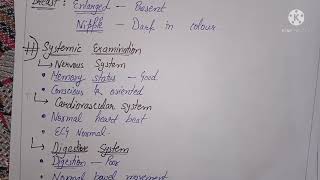 Breast : Enlarged — Present
Nipple — Dark in colour
Systemic Examination
↳ Nervous System
• Memory status — Good
• Conscious for oriented
↳ Cardiovascular system
• Normal heart beat
• ECG Normal.
↳ Digestive System
• Digestion — Poor
• Normal bowel movement